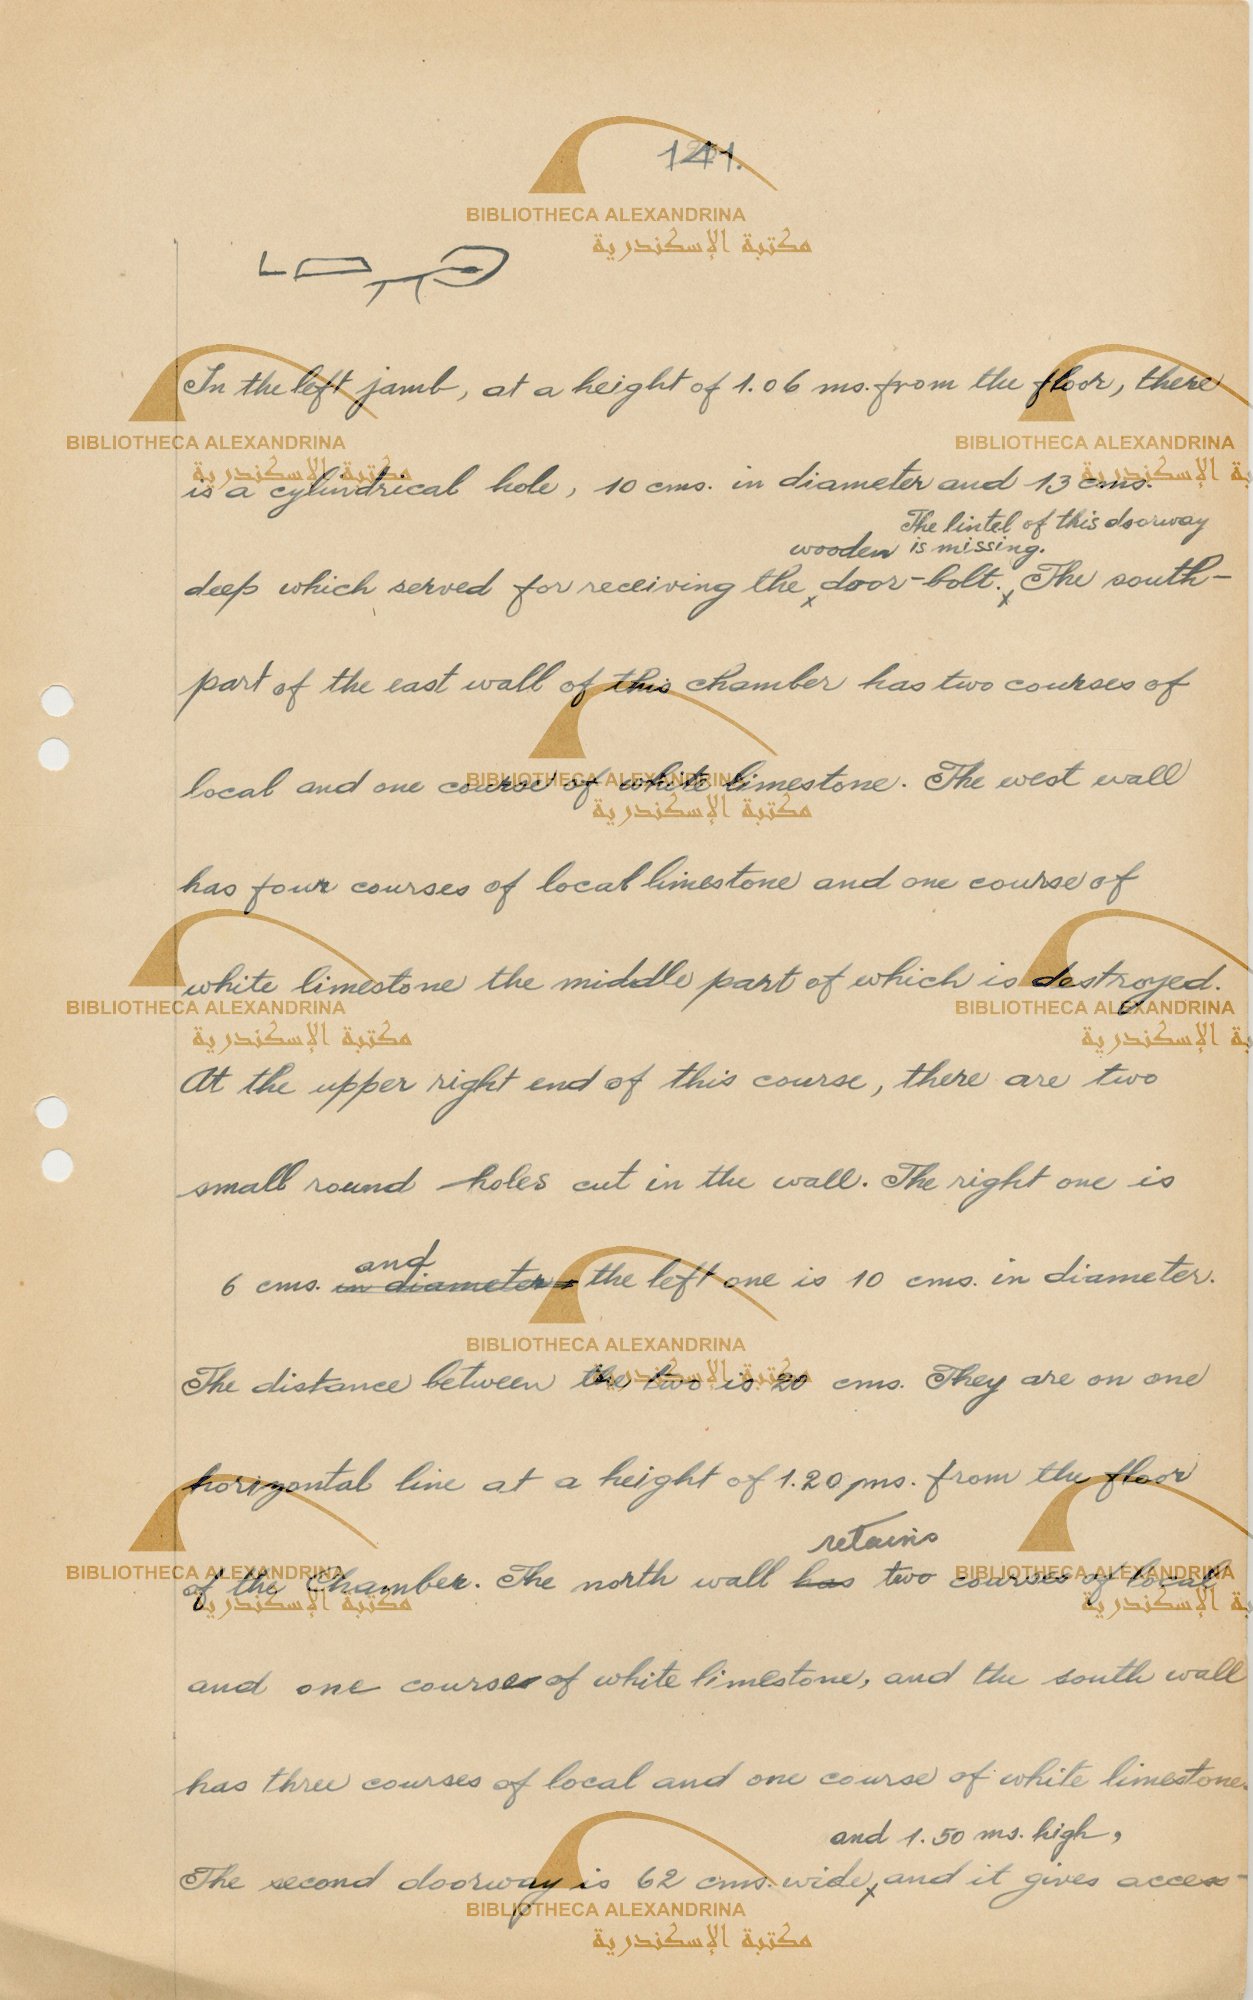 141.
In the left jamb, at a height of 1.06 ms. from the floor, there
is a cylindrical hole, 10 cms. in diameter and 13 cms.
The lintel of this doorway
wooden is missing.
deep which served for receiving the x door-bolt. x The south-
part of the east wall of this chamber has two courses of
local and one course of white limestone. The west wall
has four courses of local limestone and one course of
white limestone the middle part of which is destroyed.
At the upper right end of this course, there are two
small round holes cut in the wall. The right one is
and
6 cms. in diameter, the left one is 10 cms. in diameter.
The distance between the two is 20 cms. They are on one
horizontal line at a height of 1.20 ms. from the floor
retains
of the Chamber. The north wall has two courses of local
and one course of white limestone, and the south wall
has three courses of local and one course of white limestone.
and 1.50 ms. high,
The second doorway is 62 cms. wide x and it gives access-
BIBLIOTHECA ALEXANDRINA
مكتبة الإسكندرية